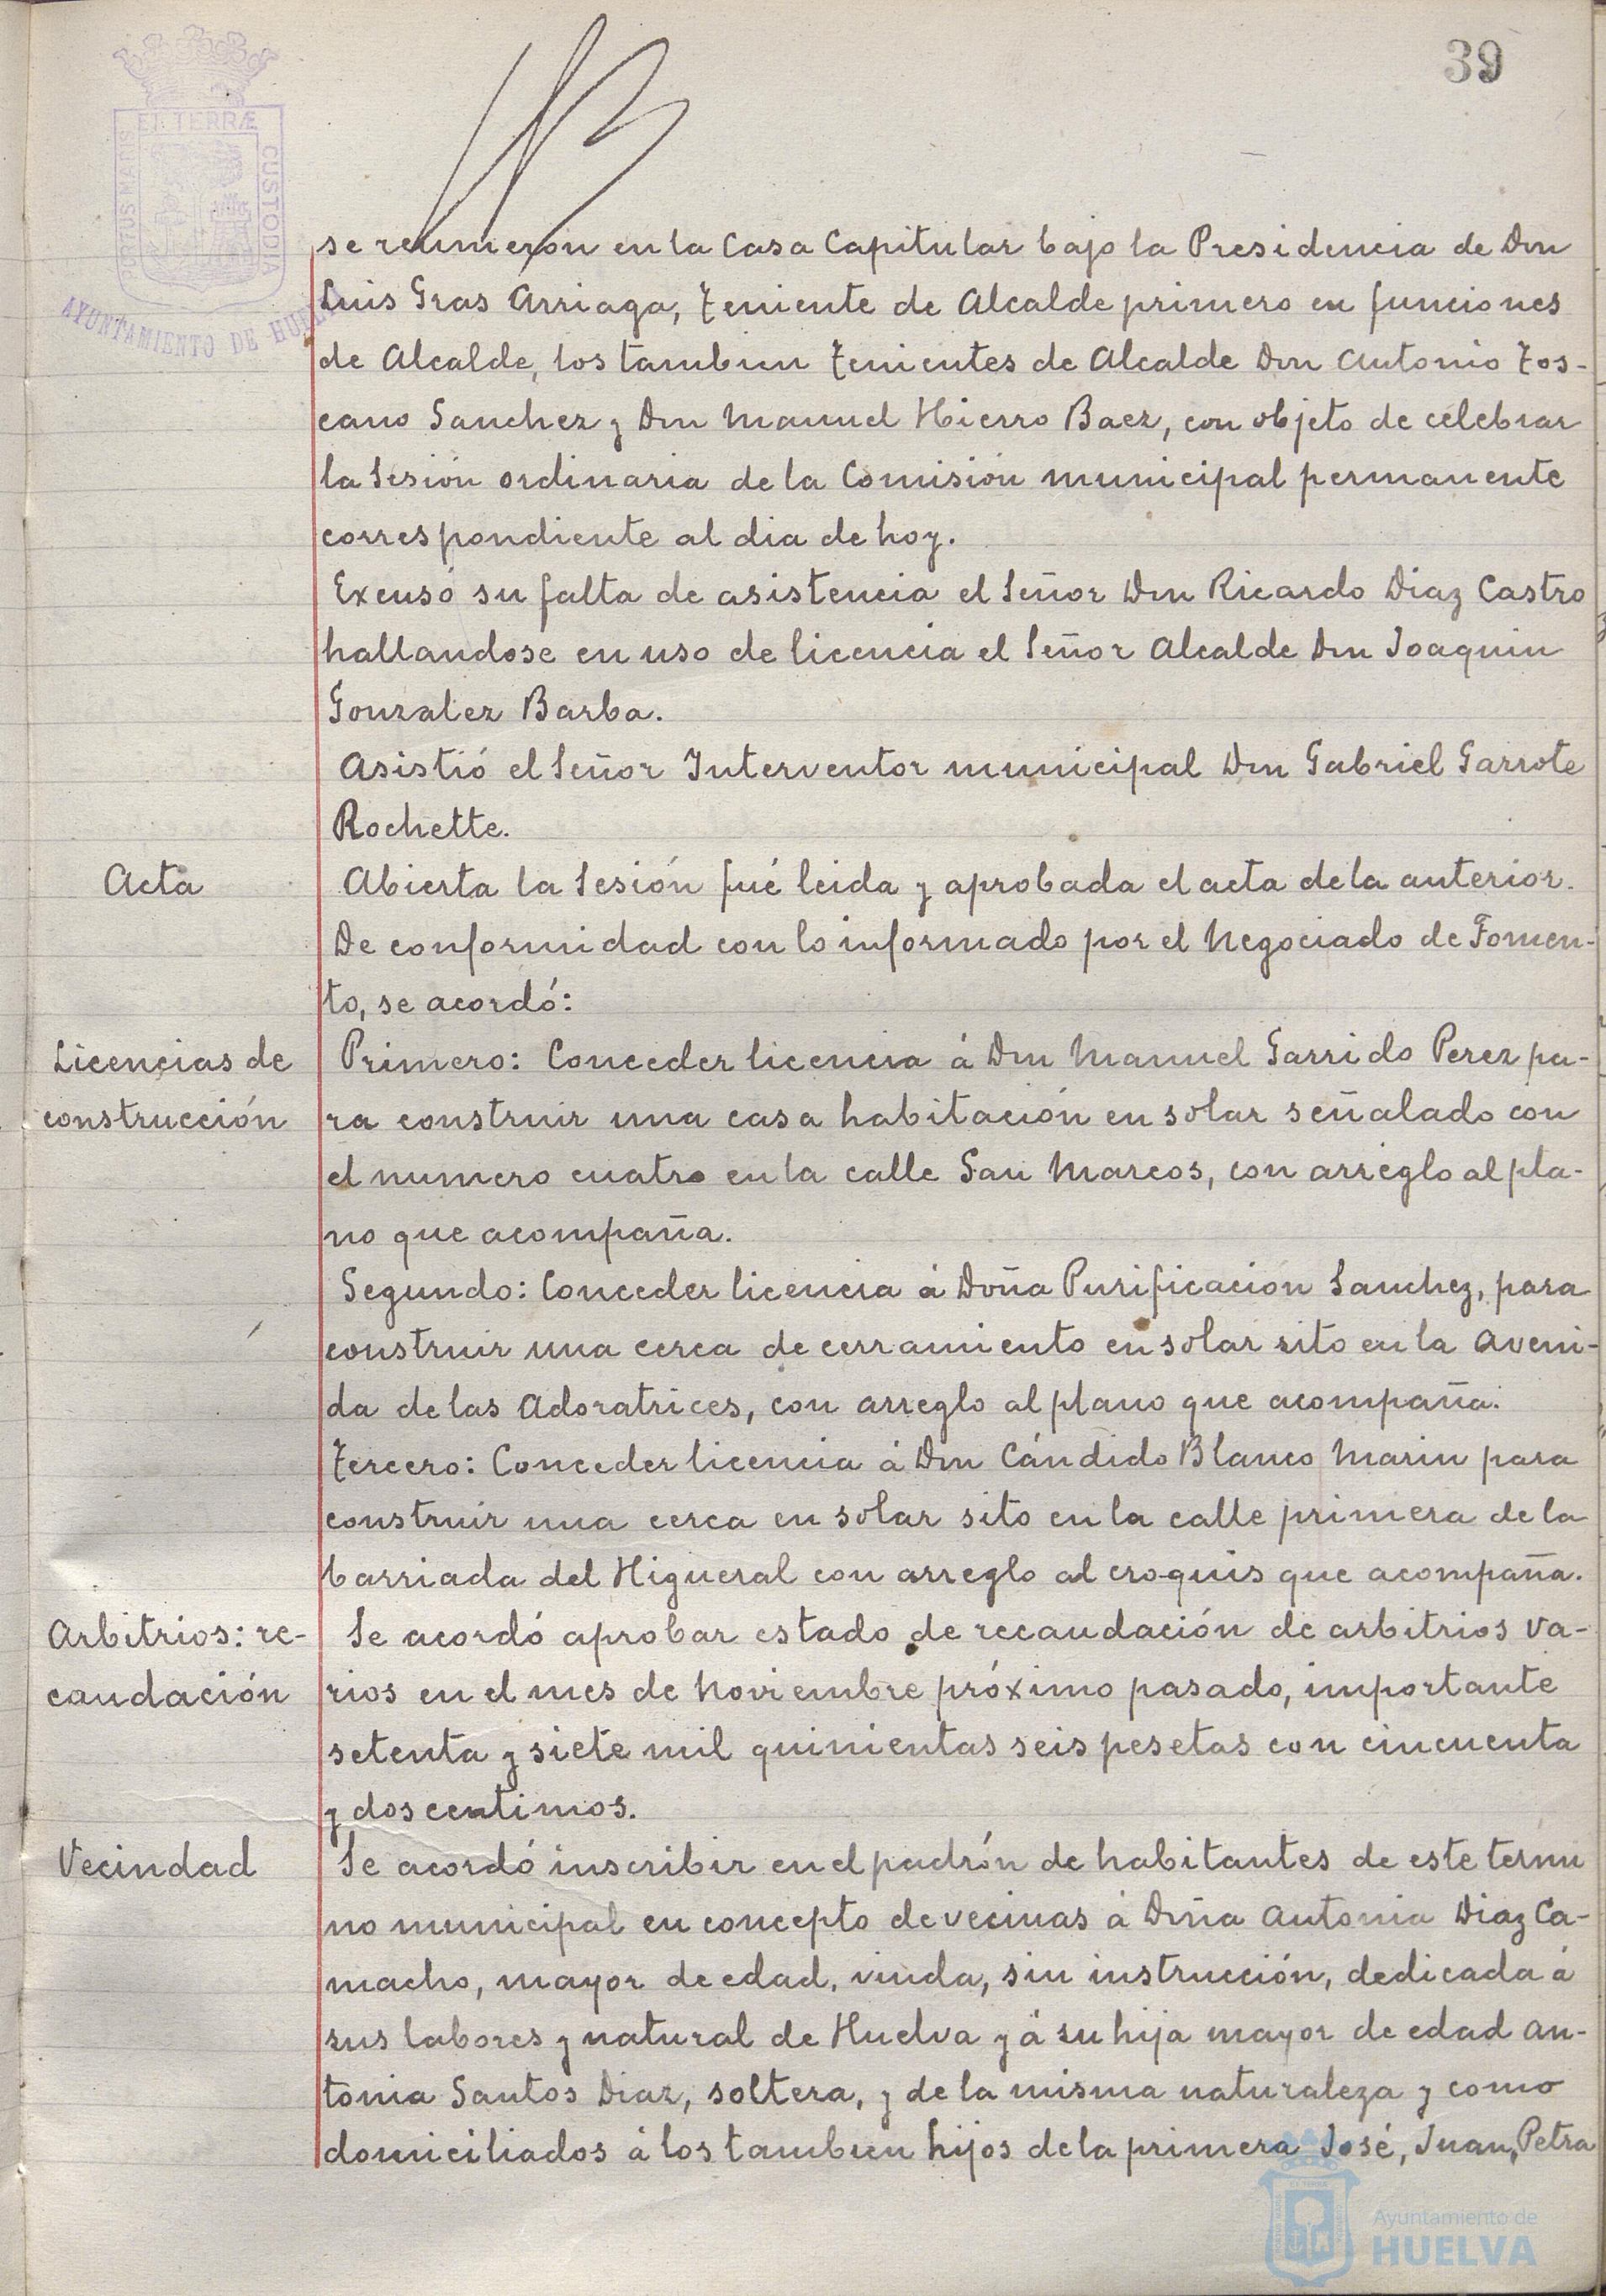 39
ET TERRÆ
PORTUS MARIS
CUSTODIA
AYUNTAMIENTO DE HUELVA
se reunieron en la Casa Capitular bajo la Presidencia de Don
Luis Gras Arriaga, Teniente de Alcalde primero en funciones
de Alcalde, los tambien Tenientes de Alcalde Don Antonio Tos-
cano Sanchez y Don Manuel Hierro Baez, con objeto de celebrar
la Sesión ordinaria de la Comisión municipal permanente
correspondiente al dia de hoy.
Excusó su falta de asistencia el Señor Don Ricardo Diaz Castro
hallandose en uso de licencia el Señor Alcalde Don Joaquin
Gonzalez Barba.
Asistió el Señor Interventor municipal Don Gabriel Garrote
Rochette.
Acta
Abierta la Sesión fué leida y aprobada el acta de la anterior.
De conformidad con lo informado por el Negociado de Fomen-
to, se acordó:
Licencias de
construcción
Primero: Conceder licencia á Don Manuel Garrido Perez pa-
ra construir una casa habitación en solar señalado con
el numero cuatro en la calle San Marcos, con arreglo al pla-
no que acompaña.
Segundo: Conceder licencia á Doña Purificación Sanchez, para
construir una cerca de cerramiento en solar sito en la Aveni-
da de las Adoratrices, con arreglo al plano que acompaña.
Tercero: Conceder licencia á Don Cándido Blanco Marin para
construir una cerca en solar sito en la calle primera de la
barriada del Higueral con arreglo al croquis que acompaña.
Arbitrios: re-
caudación
Se acordó aprobar estado de recaudación de arbitrios va-
rios en el mes de Noviembre próximo pasado, importante
setenta y siete mil quinientas seis pesetas con cincuenta
y dos centimos.
Vecindad
Se acordó inscribir en el padrón de habitantes de este termi
no municipal en concepto de vecinas á Doña Antonia Diaz Ca-
macho, mayor de edad, viuda, sin instrucción, dedicada á
sus labores y natural de Huelva y á su hija mayor de edad An-
tonia Santos Diaz, soltera, y de la misma naturaleza y como
domiciliados á los tambien hijos de la primera José, Juan, Petra
Ayuntamiento de
HUELVA